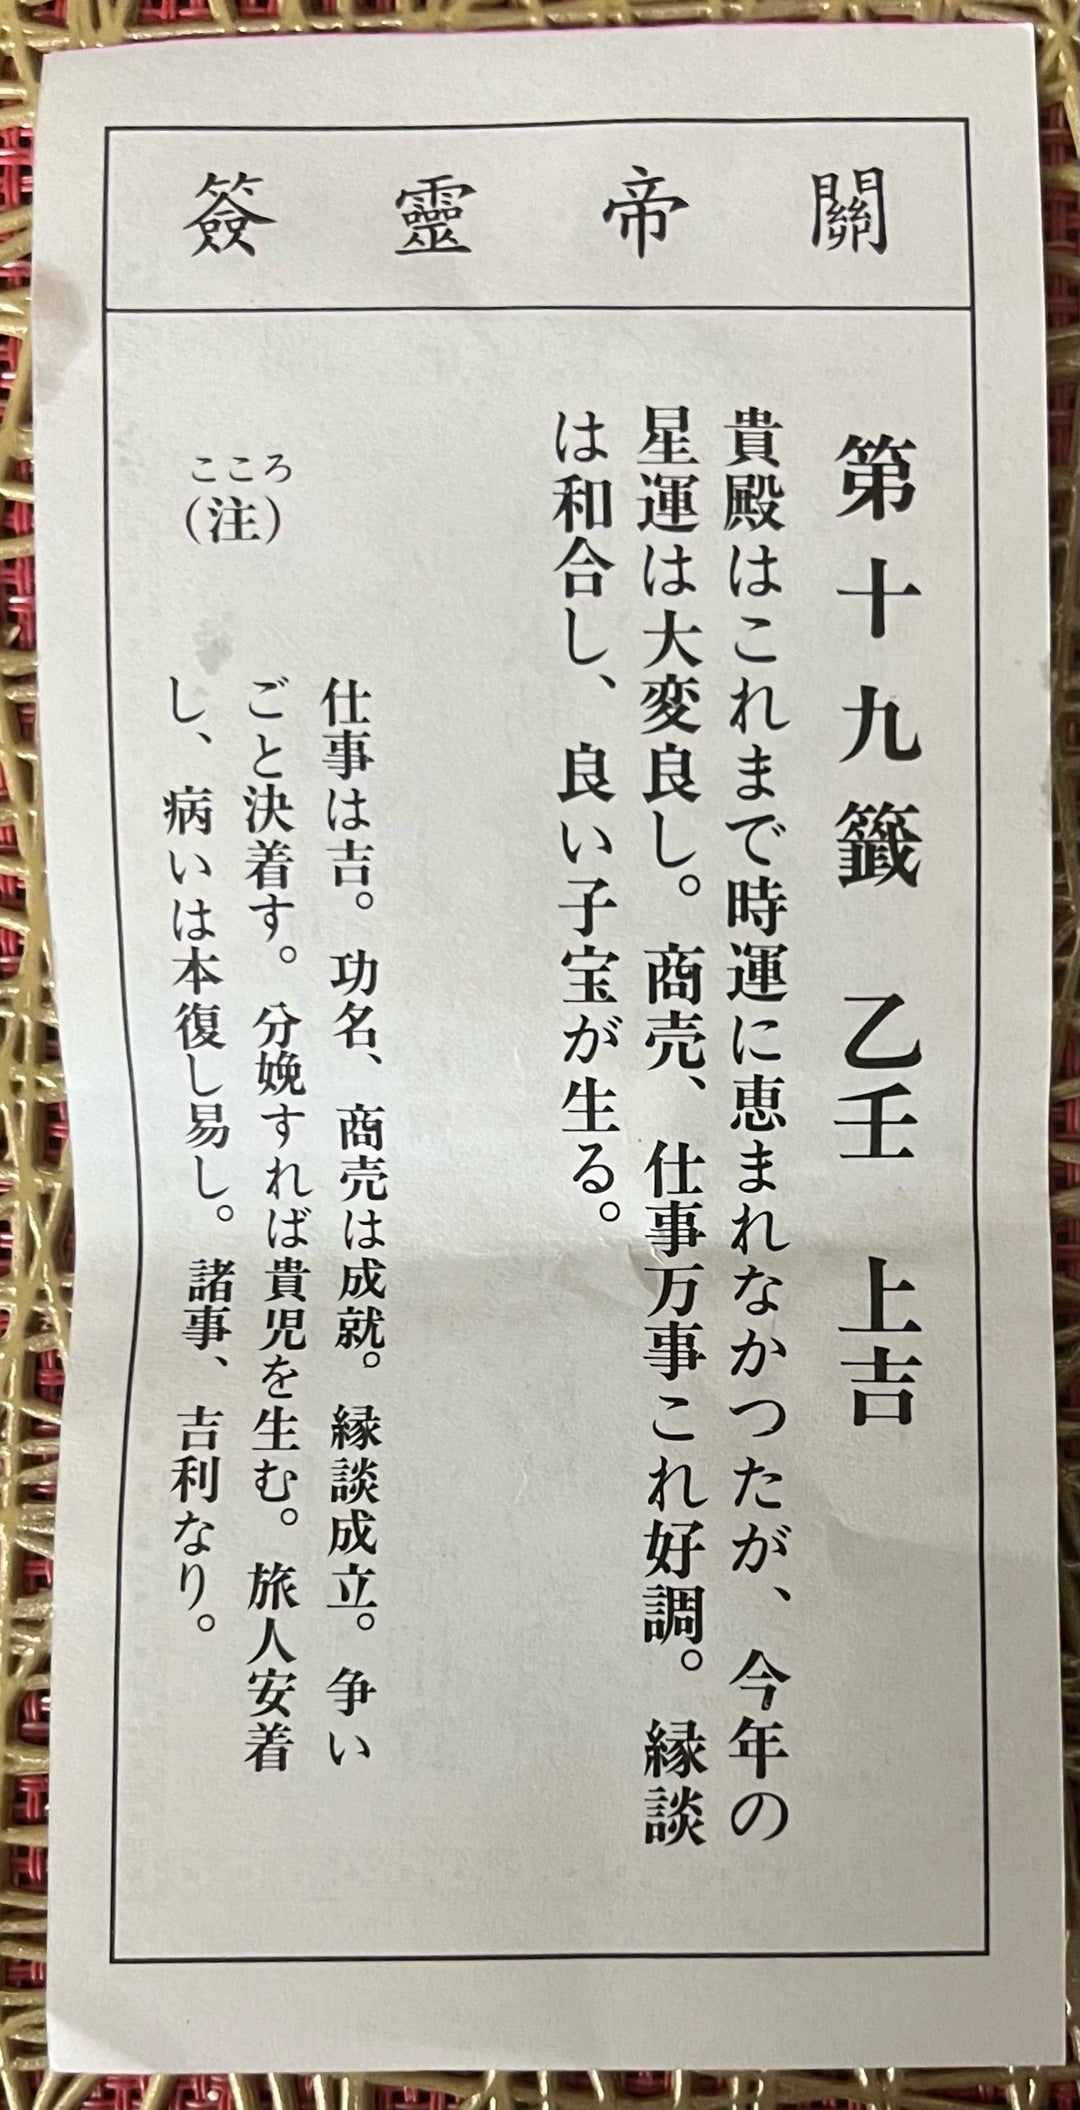 關帝靈簽
第十九籤 乙壬 上吉
貴殿はこれまで時運に恵まれなかつたが、今年の
星運は大変良し。商売、仕事万事これ好調。縁談
は和合し、良い子宝が生る。
こころ
（注）
仕事は吉。功名、商売は成就。縁談成立。争い
ごと決着す。分娩すれば貴児を生む。旅人安着
し、病いは本復し易し。諸事、吉利なり。